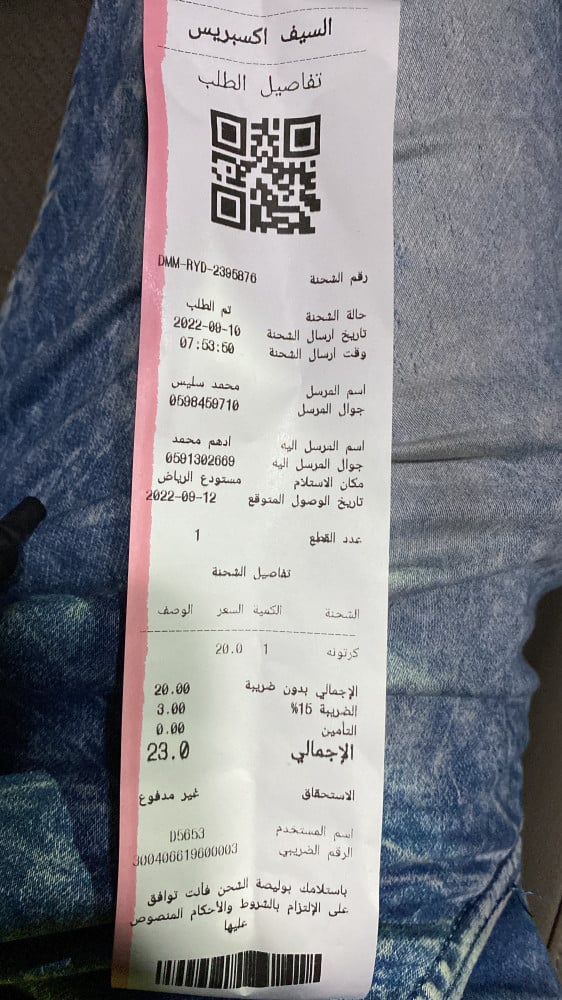 السيف اكسبريس
تفاصيل الطلب
رقم الشحنة DMM-RYD-2395876
حالة الشحنة تم الطلب
تاريخ ارسال الشحنة 2022-09-10
وقت ارسال الشحنة 07:53:50
اسم المرسل محمد سليس
جوال المرسل 0598459710
اسم المرسل اليه ادهم محمد
جوال المرسل اليه 0591302669
مكان الاستلام مستودع الرياض
تاريخ الوصول المتوقع 2022-09-12
عدد القطع 1
تفاصيل الشحنة
الشحنة الكمية السعر الوصف
كرتونه 1 20.0
الإجمالي بدون ضريبة 20.00
الضريبة 15% 3.00
التأمين 0.00
الإجمالي 23.0
الاستحقاق غير مدفوع
اسم المستخدم D5653
الرقم الضريبي 300406619600003
باستلامك بوليصة الشحن فأنت توافق
على الإلتزام بالشروط والأحكام المنصوص
عليها